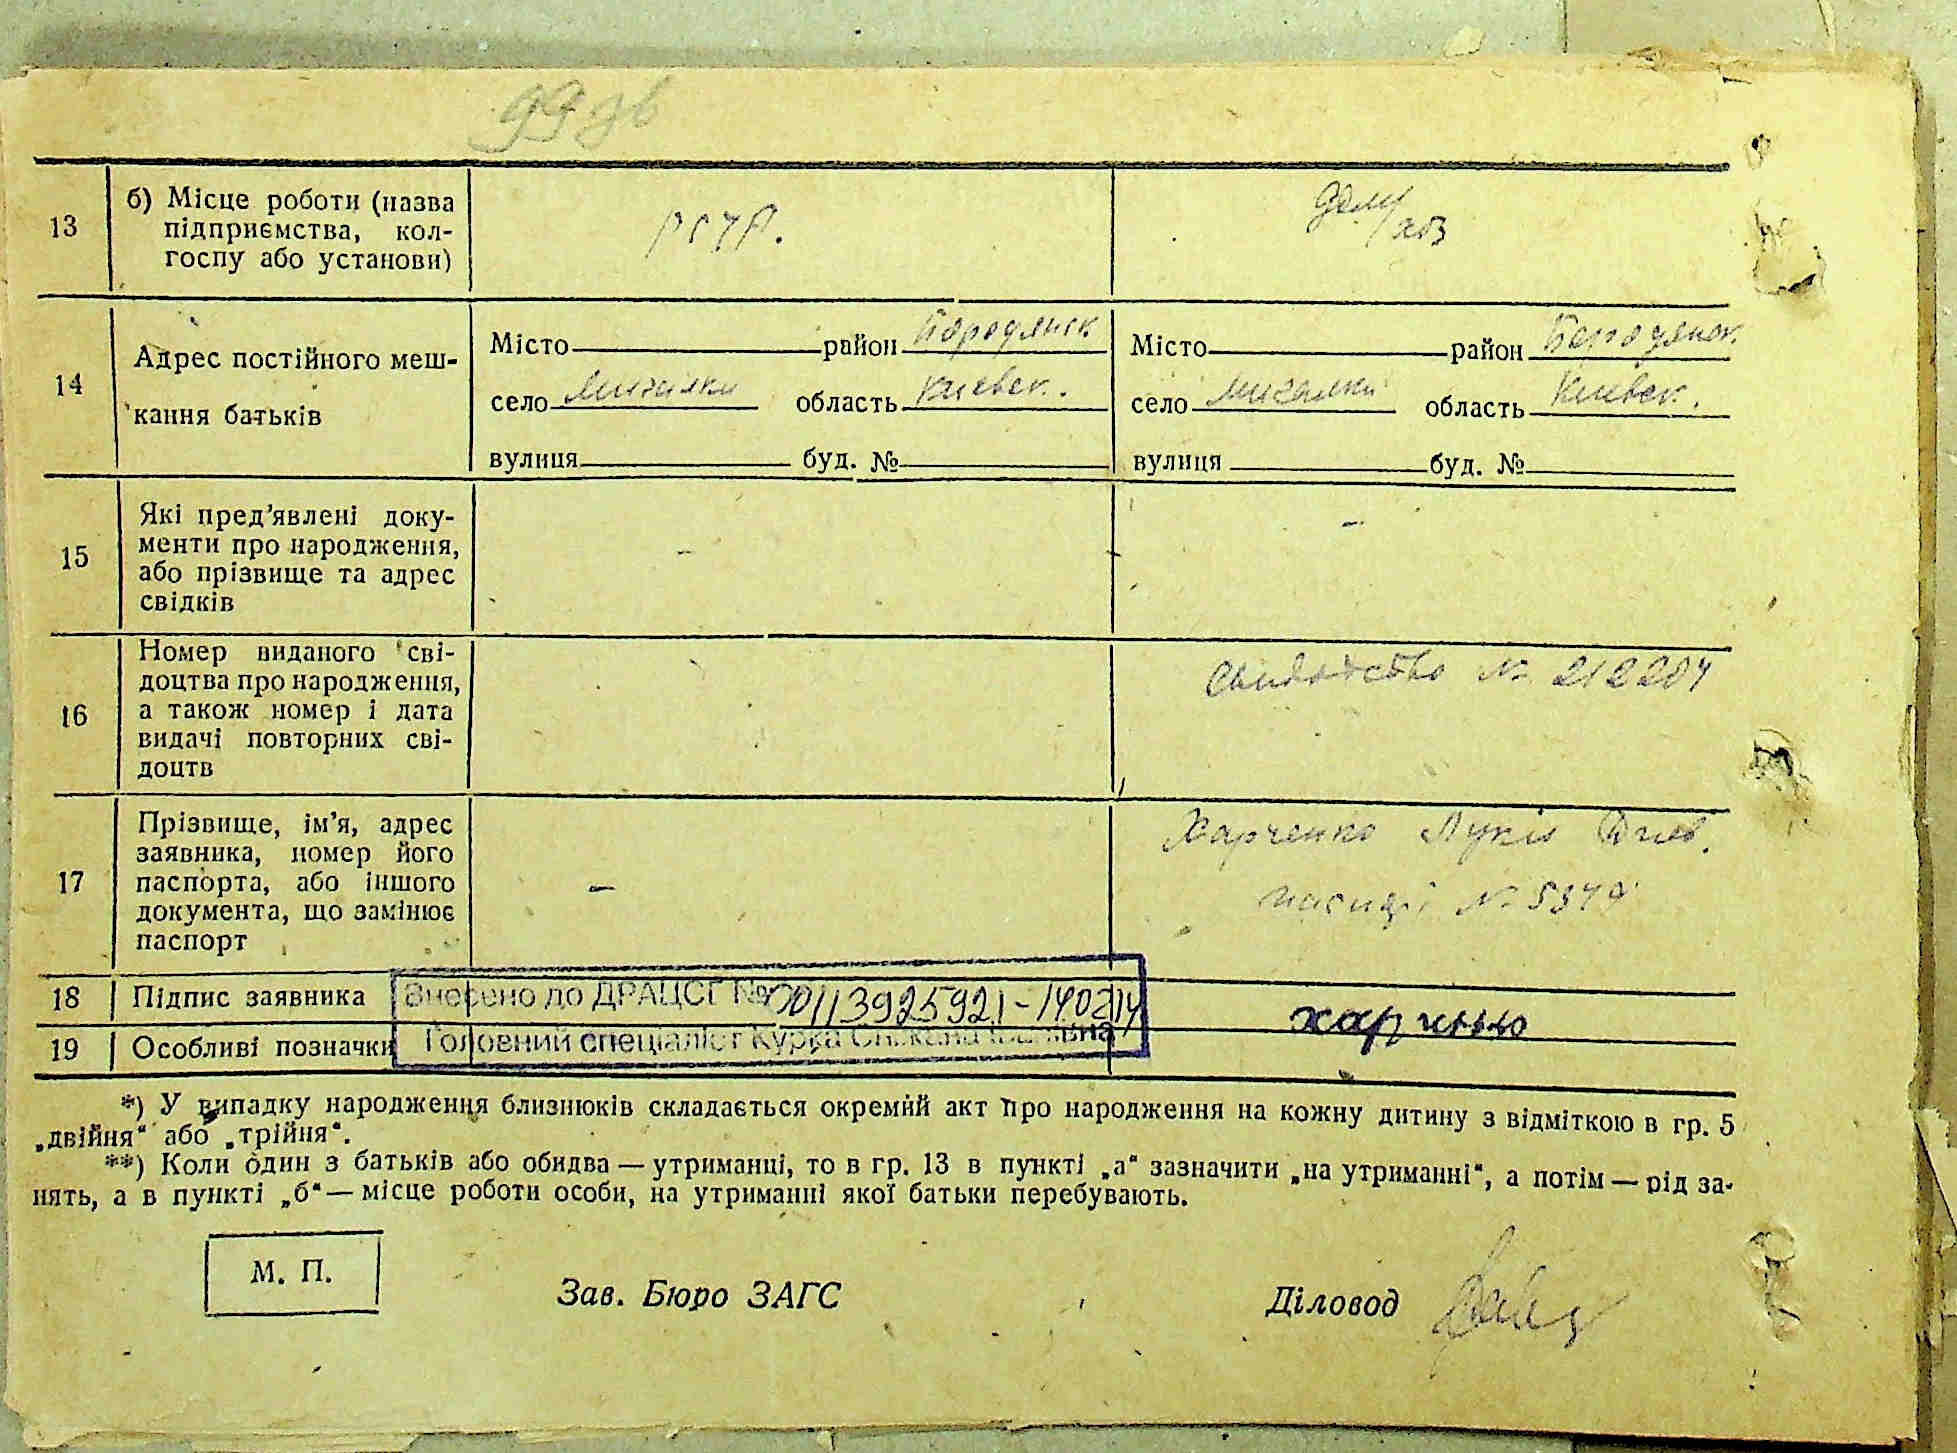 99 зв
13
б) Місце роботи (назва
підприємства, кол-
госпу або установи)
14
Адрес постійного меш-
кання батьків
Місто район Бородянск
село Мигалки область Киевск.
вулиця буд. №
Місто район Бородянск.
село Мигалки область Киевск.
вулиця буд. №
15
Які пред'явлені доку-
менти про народження,
або прізвище та адрес
свідків
–
–
16
Номер виданого сві-
доцтва про народження,
а також номер і дата
видачі повторних сві-
доцтв
№ 212204
17
Прізвище, ім'я, адрес
заявника, номер його
паспорта, або іншого
документа, що замінює
паспорт
–
Харченко
№ 5379
18 Підпис заявника
Внесено до ДРАЦСГ №
19 Особливі позначки
Головний спеціаліст Курка
*) У випадку народження близнюків складається окремий акт про народження на кожну дитину з відміткою в гр. 5
„двійня“ або „трійня“.
**) Коли один з батьків або обидва — утриманці, то в гр. 13 в пункті „а“ зазначити „на утриманні“, а потім — рід за-
нять, а в пункті „б“ — місце роботи особи, на утриманні якої батьки перебувають.
М. П.
Зав. Бюро ЗАГС
Діловод